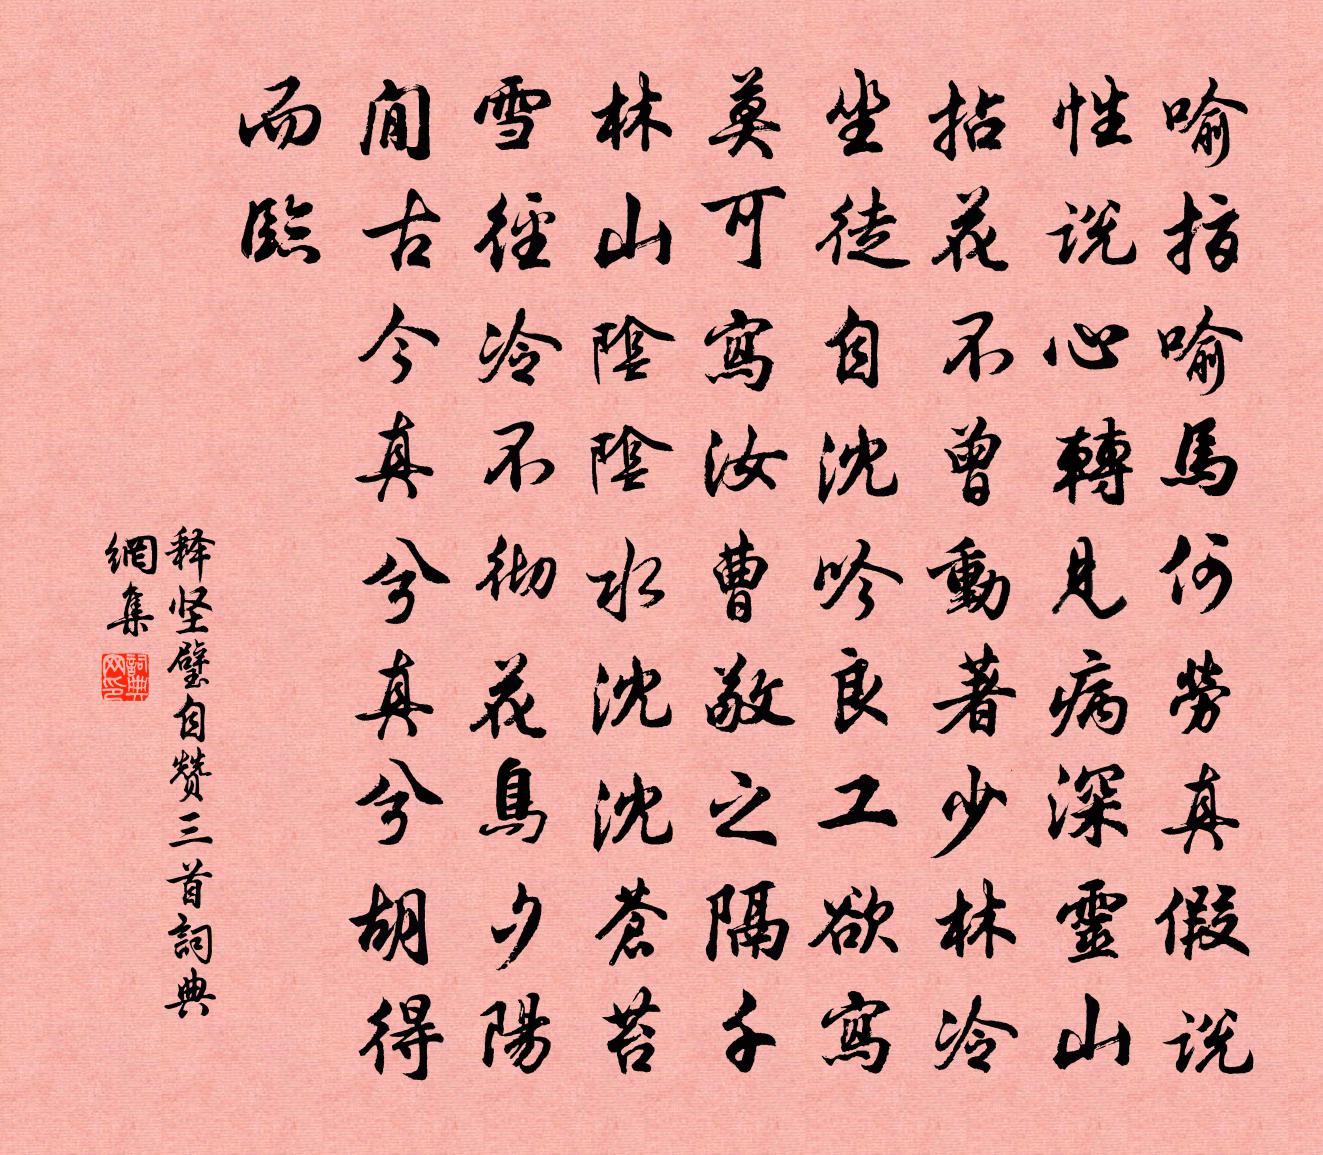 喻指喻馬何勞真假說
性說心轉見病深靈山
拈花不曾動著少林冷
坐徒自沈吟良工欲寫
莫可寫汝曹敬之隔千
林山陰陰水沈沈蒼苔
雪徑冷不彻花鳥夕陽
閒古今真兮真兮胡得
而臨
释坚璧自赞三首詞典
網集
詞典
网印